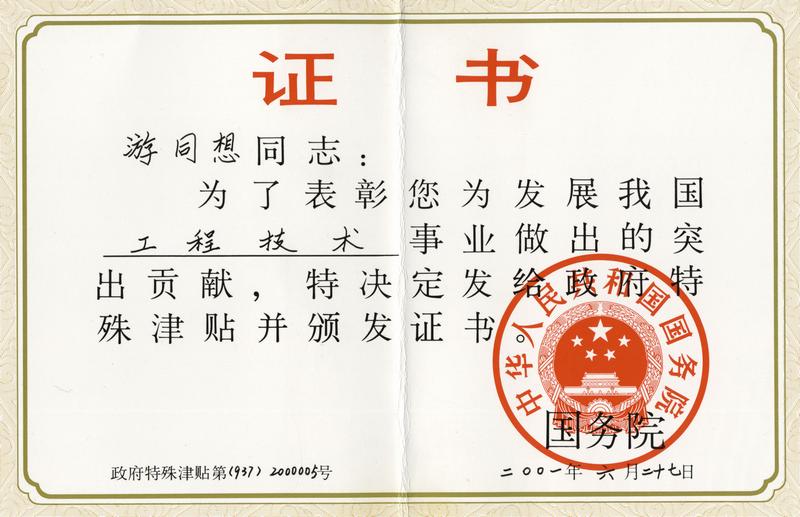 证书
游同想同志：
为了表彰您为发展我国
工程技术事业做出的突
出贡献，特决定发给政府特
殊津贴并颁发证书。
中华人民共和国国务院
国务院
政府特殊津贴第(937)2000005号
二〇〇一年六月二十七日